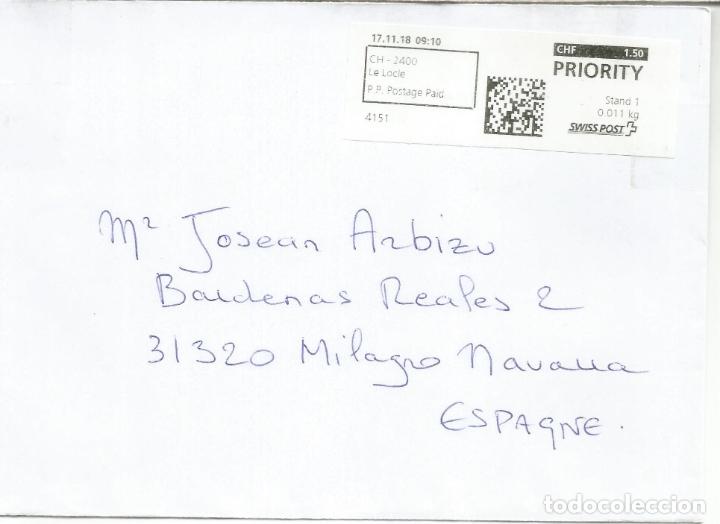 17.11.18 09:10
CH - 2400
Le Locle
P.P. Postage Paid
4151
CHF 1.50
PRIORITY
Stand 1
0.011 kg
SWISS POST
Mr Josean Arbizu
Bardenas Reales 2
31320 Milagro Navarra
ESPAGNE.
todocoleccion